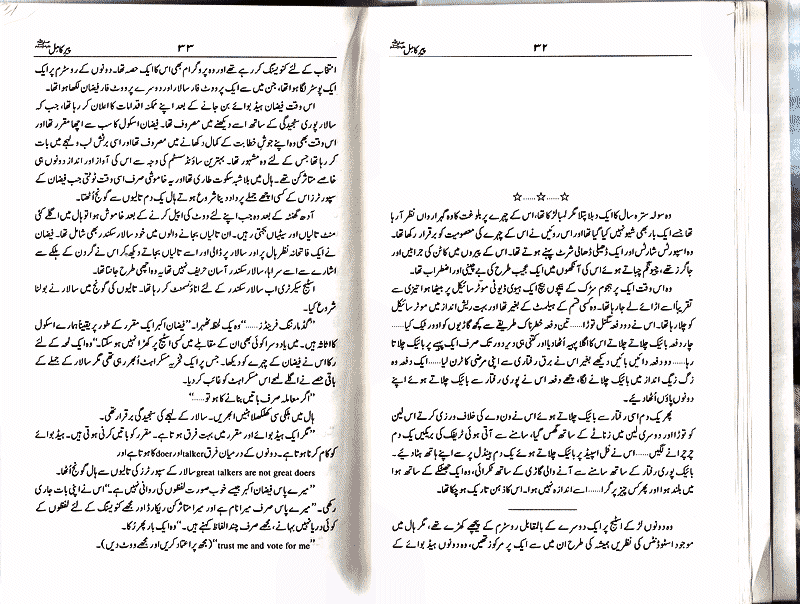 ۳۲
پیرِ کامل
☆……☆……☆
وہ سولہ سترہ سال کا ایک دبلا پتلا مگر لمبا لڑکا تھا، اس کے چہرے پر بلوغت کا وہ گہرا رواں نظر آرہا
تھا جسے ایک بار بھی شیو نہیں کیا گیا تھا اور اس روئیں نے اس کے چہرے کی معصومیت کو برقرار رکھا تھا۔
وہ اسپورٹس شارٹس اور ایک ڈھیلی ڈھالی شرٹ پہنے ہوئے تھا۔ اس کے پیروں میں کاٹن کی جرابیں اور
جاگرز تھے، چیونگم چباتے ہوئے اس کی آنکھوں میں ایک عجیب طرح کی بے چینی اور اضطراب تھا۔
وہ اس وقت ایک پرہجوم سڑک کے بیچوں بیچ ایک ہیوی ڈیوٹی موٹر سائیکل پر بیٹھا ہوا تیزی سے
تقریباً اسے اڑائے لے جارہا تھا۔ وہ کسی قسم کے ہیلمٹ کے بغیر تھا اور بہت ریش انداز میں موٹر سائیکل
کو چلا رہا تھا۔ اس نے دو دفعہ سگنل توڑا……تین دفعہ خطرناک طریقے سے کچھ گاڑیوں کو اوور ٹیک کیا……
چار دفعہ بائیک چلاتے چلاتے اس کا اگلا پہیہ اُٹھا دیا اور کتنی ہی دیر دور تک صرف ایک پہیے پر بائیک چلاتا
رہا……دو دفعہ دائیں بائیں دیکھے بغیر اس نے برق رفتاری سے اپنی مرضی کا ٹرن لیا……ایک دفعہ وہ
زگ زیگ انداز میں بائیک چلانے لگا، چھ دفعہ اس نے پوری رفتار سے بائیک چلاتے ہوئے اپنے
دونوں پاؤں اُٹھا دیئے۔
پھر یک دم اسی رفتار سے بائیک چلاتے ہوئے اس نے ون وے کی خلاف ورزی کرتے اس لین
کو توڑا اور دوسری لین میں زناٹے کے ساتھ گھس گیا، سامنے سے آتی ہوئی ٹریفک کی بریکیں یک دم
چرچرانے لگیں……اس نے فل اسپیڈ پر بائیک چلاتے ہوئے یک دم ہینڈل پر سے اپنے ہاتھ ہٹا دیئے۔
بائیک پوری رفتار کے ساتھ سامنے سے آنے والی گاڑی کے ساتھ ٹکرائی، وہ ایک جھٹکے کے ساتھ ہوا
میں بلند ہوا اور پھر کس چیز پر گرا……اسے اندازہ نہیں ہوا۔ اس کا ذہن تاریک ہو چکا تھا۔
وہ دونوں لڑکے اسٹیج پر ایک دوسرے کے بالمقابل روسٹرم کے پیچھے کھڑے تھے، مگر ہال میں
موجود اسٹوڈنٹس کی نظریں ہمیشہ کی طرح ان میں سے ایک پر مرکوز تھیں، وہ دونوں ہیڈ بوائے کے
۳۳
پیرِ کامل
انتخاب کے لئے کنویسنگ کر رہے تھے اور وہ پروگرام بھی اس کا ایک حصہ تھا۔ دونوں کے روسٹرم پر ایک
ایک پوسٹر لگا ہوا تھا، جن میں سے ایک پر ووٹ فار سالار اور دوسرے پر ووٹ فار فیضان لکھا ہوا تھا۔
اس وقت فیضان ہیڈ بوائے بن جانے کے بعد اپنے ممکنہ اقدامات کا اعلان کر رہا تھا، جب کہ
سالار پوری سنجیدگی کے ساتھ اسے دیکھنے میں مصروف تھا۔ فیضان اسکول کا سب سے اچھا مقرر تھا اور
اس وقت بھی وہ اپنے جوش خطابت کے کمال دکھانے میں مصروف تھا اور اسی برٹش لب و لہجے میں بات
کر رہا تھا جس کے لئے وہ مشہور تھا۔ بہترین ساؤنڈ سسٹم کی وجہ سے اس کی آواز اور انداز دونوں ہی
خاصے متاثر کن تھے۔ ہال میں بلاشبہ سکوت طاری تھا اور یہ خاموشی صرف اسی وقت ٹوٹتی جب فیضان کے
سپورٹرز اس کے کسی اچھے جملے پر داد دینا شروع ہوتے ہال یک دم تالیوں سے گونج اُٹھتا۔
آدھ گھنٹہ کے بعد وہ جب اپنے لئے ووٹ کی اپیل کرنے کے بعد خاموش ہوا تو ہال میں اگلے کئی
منٹ تالیاں اور سیٹیاں بجتی رہیں۔ ان تالیاں بجانے والوں میں خود سالار سکندر بھی شامل تھا۔ فیضان
نے ایک فاتحانہ نظر ہال پر اور سالار پر ڈالی اور اسے تالیاں بجاتے دیکھ کر اس نے گردن کے ہلکے سے
اشارے سے اسے سراہا، سالار سکندر آسان حریف نہیں تھا یہ وہ اچھی طرح جانتا تھا۔
اسٹیج سیکرٹری اب سالار سکندر کے لئے اناؤنسمنٹ کر رہا تھا۔ تالیوں کی گونج میں سالار نے بولنا
شروع کیا۔
”گڈ مارننگ فرینڈز……“ وہ یک لحظہ ٹھہرا۔ ”فیضان اکبر ایک مقرر کے طور پر یقیناً ہمارے اسکول
کا اثاثہ ہیں۔ میں یا دوسرا کوئی بھی ان کے مقابلے میں کسی اسٹیج پر کھڑا نہیں ہو سکتا۔“ وہ ایک لمحہ کے لئے
رکا اس نے فیضان کے چہرے کو دیکھا۔ جس پر ایک فخریہ مسکراہٹ اُبھر رہی تھی مگر سالار کے جملے کے
باقی حصے نے اگلے لمحے اس مسکراہٹ کو غائب کر دیا۔
”اگر معاملہ صرف باتیں بنانے کا ہو تو……“
ہال میں ہلکی سی کھلکھلاہٹیں اُبھریں۔ سالار کے لہجے کی سنجیدگی برقرار تھی۔
”مگر ایک ہیڈ بوائے اور مقرر میں بہت فرق ہوتا ہے۔ مقرر کو باتیں کرنی ہوتی ہیں۔ ہیڈ بوائے
کو کام کرنا ہوتا ہے۔ دونوں کے درمیان فرق talker اور doer کا ہوتا ہے اور
great talkers are not great doers سالار کے سپورٹرز کی تالیوں سے ہال گونج اُٹھا۔
”میرے پاس فیضان اکبر جیسے خوب صورت لفظوں کی روانی نہیں ہے۔“ اس نے اپنی بات جاری
رکھی۔ ”میرے پاس صرف میرا نام ہے اور میرا متاثر کن ریکارڈ اور مجھے کنویسنگ کے لئے لفظوں کے
کوئی دریا نہیں بہانے، مجھے صرف چند الفاظ کہنے ہیں۔“ وہ ایک بار پھر رُکا۔
”trust me and vote for me“ (مجھ پر اعتماد کریں اور مجھے ووٹ دیں)۔